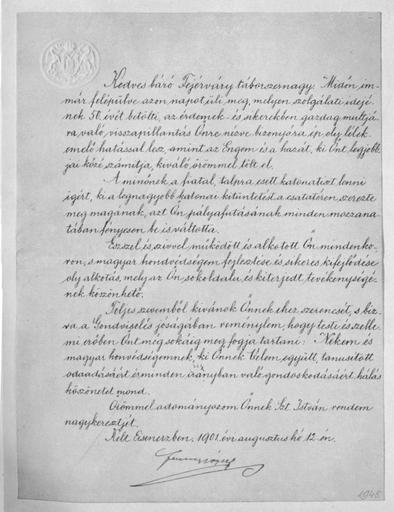 Kedves báró Fejérváry táborszernagy! Midőn im-
már felépülve azon napot üli meg, melyen szolgálati idejé-
nek 50. évét bitölti, az érdemek- és sikerekben gazdag multjá-
ra való visszapillantás Önre nézve bizonyára ép oly lélek-
emelő hatással lesz, amint az Engem és a hazát, ki Önt legjobb-
jai közé számitja, kiváló örömmel tölt el.
A minőnek a fiatal, talpra esett katonatiszt lenni
igért, ki a legnagyobb katonai kitüntetést a csatatéren szerezte
meg magának, azt Ön pályafutásának minden mozzana-
tában fényesen be is váltotta.
Ésszel és szivvel működött és alkotott Ön mindenko-
ron, s magyar honvédségem fejlesztése és sikeres kifejlődése
oly alkotás, mely az Ön sokoldalu és kiterjedt tevékenységé-
nek köszönhető.
Teljes szivemből kivánok Önnek ehez szerencsét, s biz-
va a Gondviselés jóságában reménylem, hogy testi és szelle-
mi erőben Önt még sokáig meg fogja tartani: Nekem és
magyar honvédségemnek, ki Önnek Velem együtt, tanusitott
odaadásáért és minden irányban való gondoskodásáért hálás
köszönetet mond.
Örömmel adományozom Önnek Szt. István rendem
nagykeresztjét.
Kelt Ebenseeben, 1901. évi augusztus hó 12-én.
Ferencz József
1945